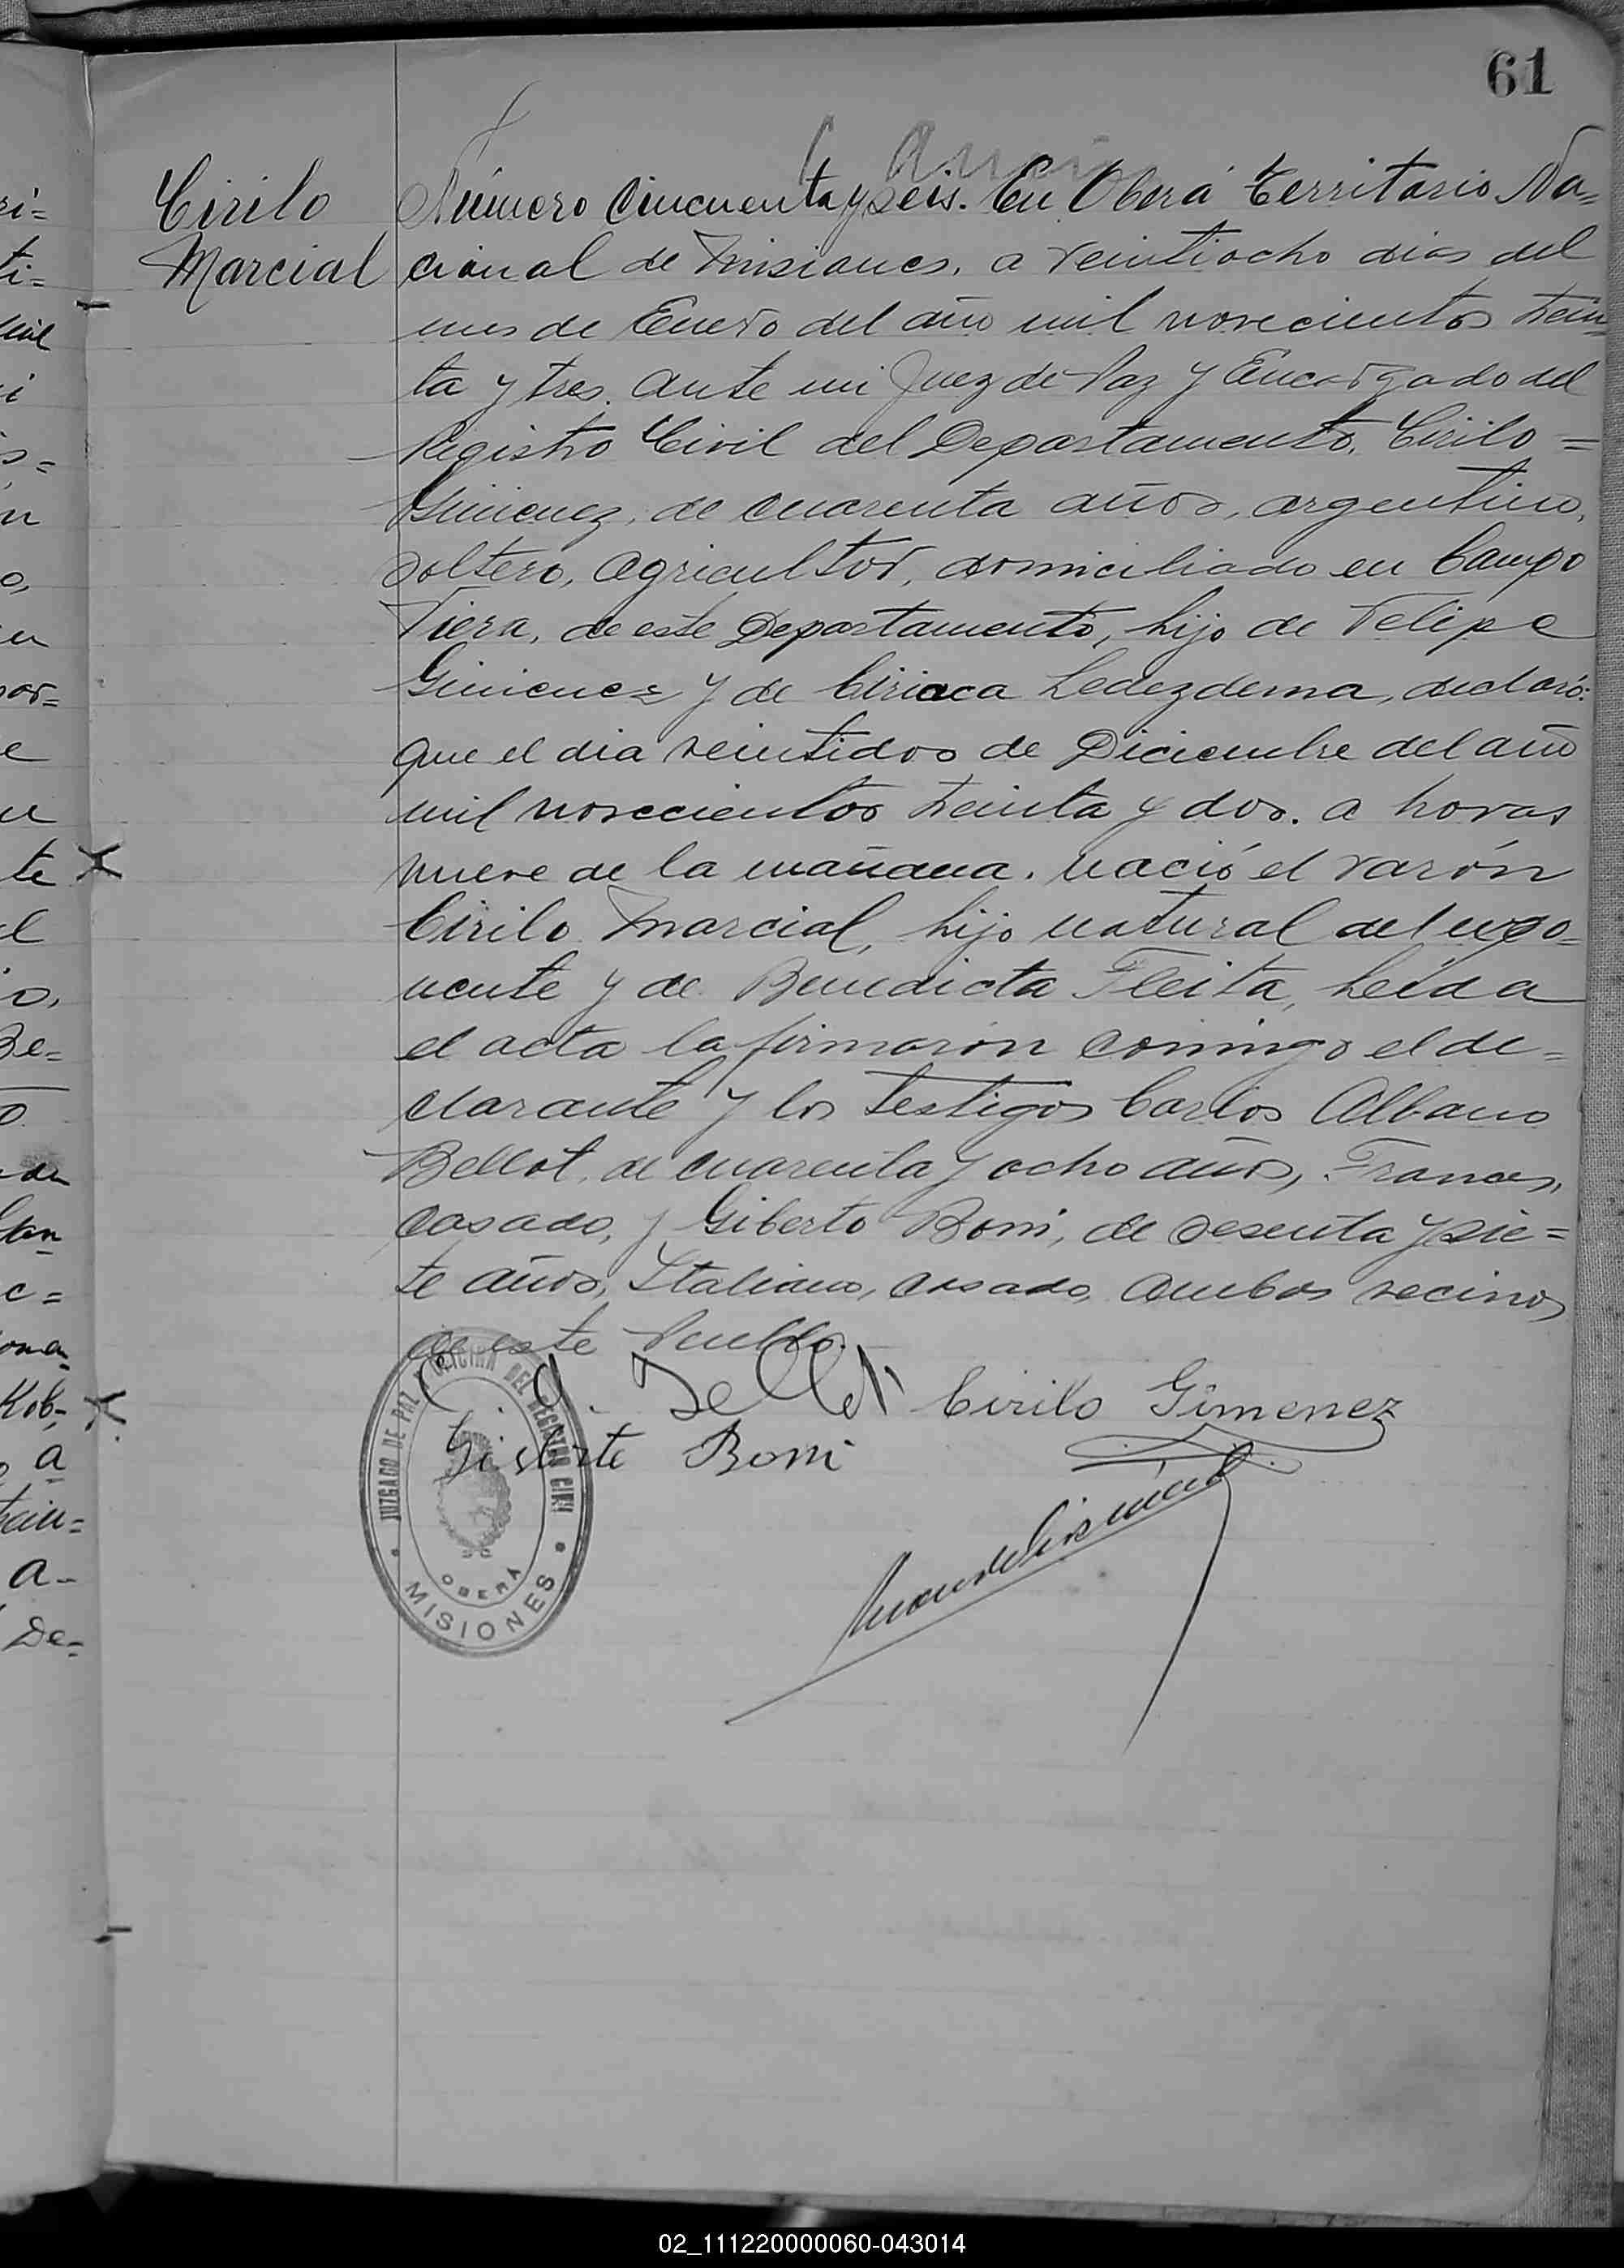 61
Cirilo
Marcial
Número Cincuenta y seis. En Oberá Territorio Na=
cional de Misiones, a veintiocho dias del
mes de Enero del año mil novecientos trein
ta y tres. Ante mi Juez de Paz y Encargado del
Registro Civil del Departamento, Cirilo =
Gimenez, de cuarenta años, argentino,
soltero, agricultor, domiciliado en Campo
Viera, de este Departamento, hijo de Felipe
Gimenez y de Ciriaca Ledezdema, declaró:
que el dia veintidos de Diciembre del año
mil novecientos treinta y dos. a horas
nueve de la mañana. nació el varón
Cirilo Marcial, hijo natural del expo=
nente y de Benedicta Fleita, Leída
el acta la firmaron conmigo el de=
clarante y los testigos Carlos Albano
Bellot, de cuarenta y ocho años, Frances,
casado, y Giberto Boni, de sesenta y sie=
te años, Italiano, casado, ambos vecinos
de este Pueblo.
C. A. Bellot
Cirilo Gimenez
Giberto Boni
JUZGADO DE PAZ Y OFICINA DEL REGISTRO CIVIL
OBERÁ
MISIONES
ri=
ti=
mil
i
s=
n
o,
u
por=
e
u
te
el
io,
Be=
o
c=
Rob=
a
a-
De=
02_111220000060-043014